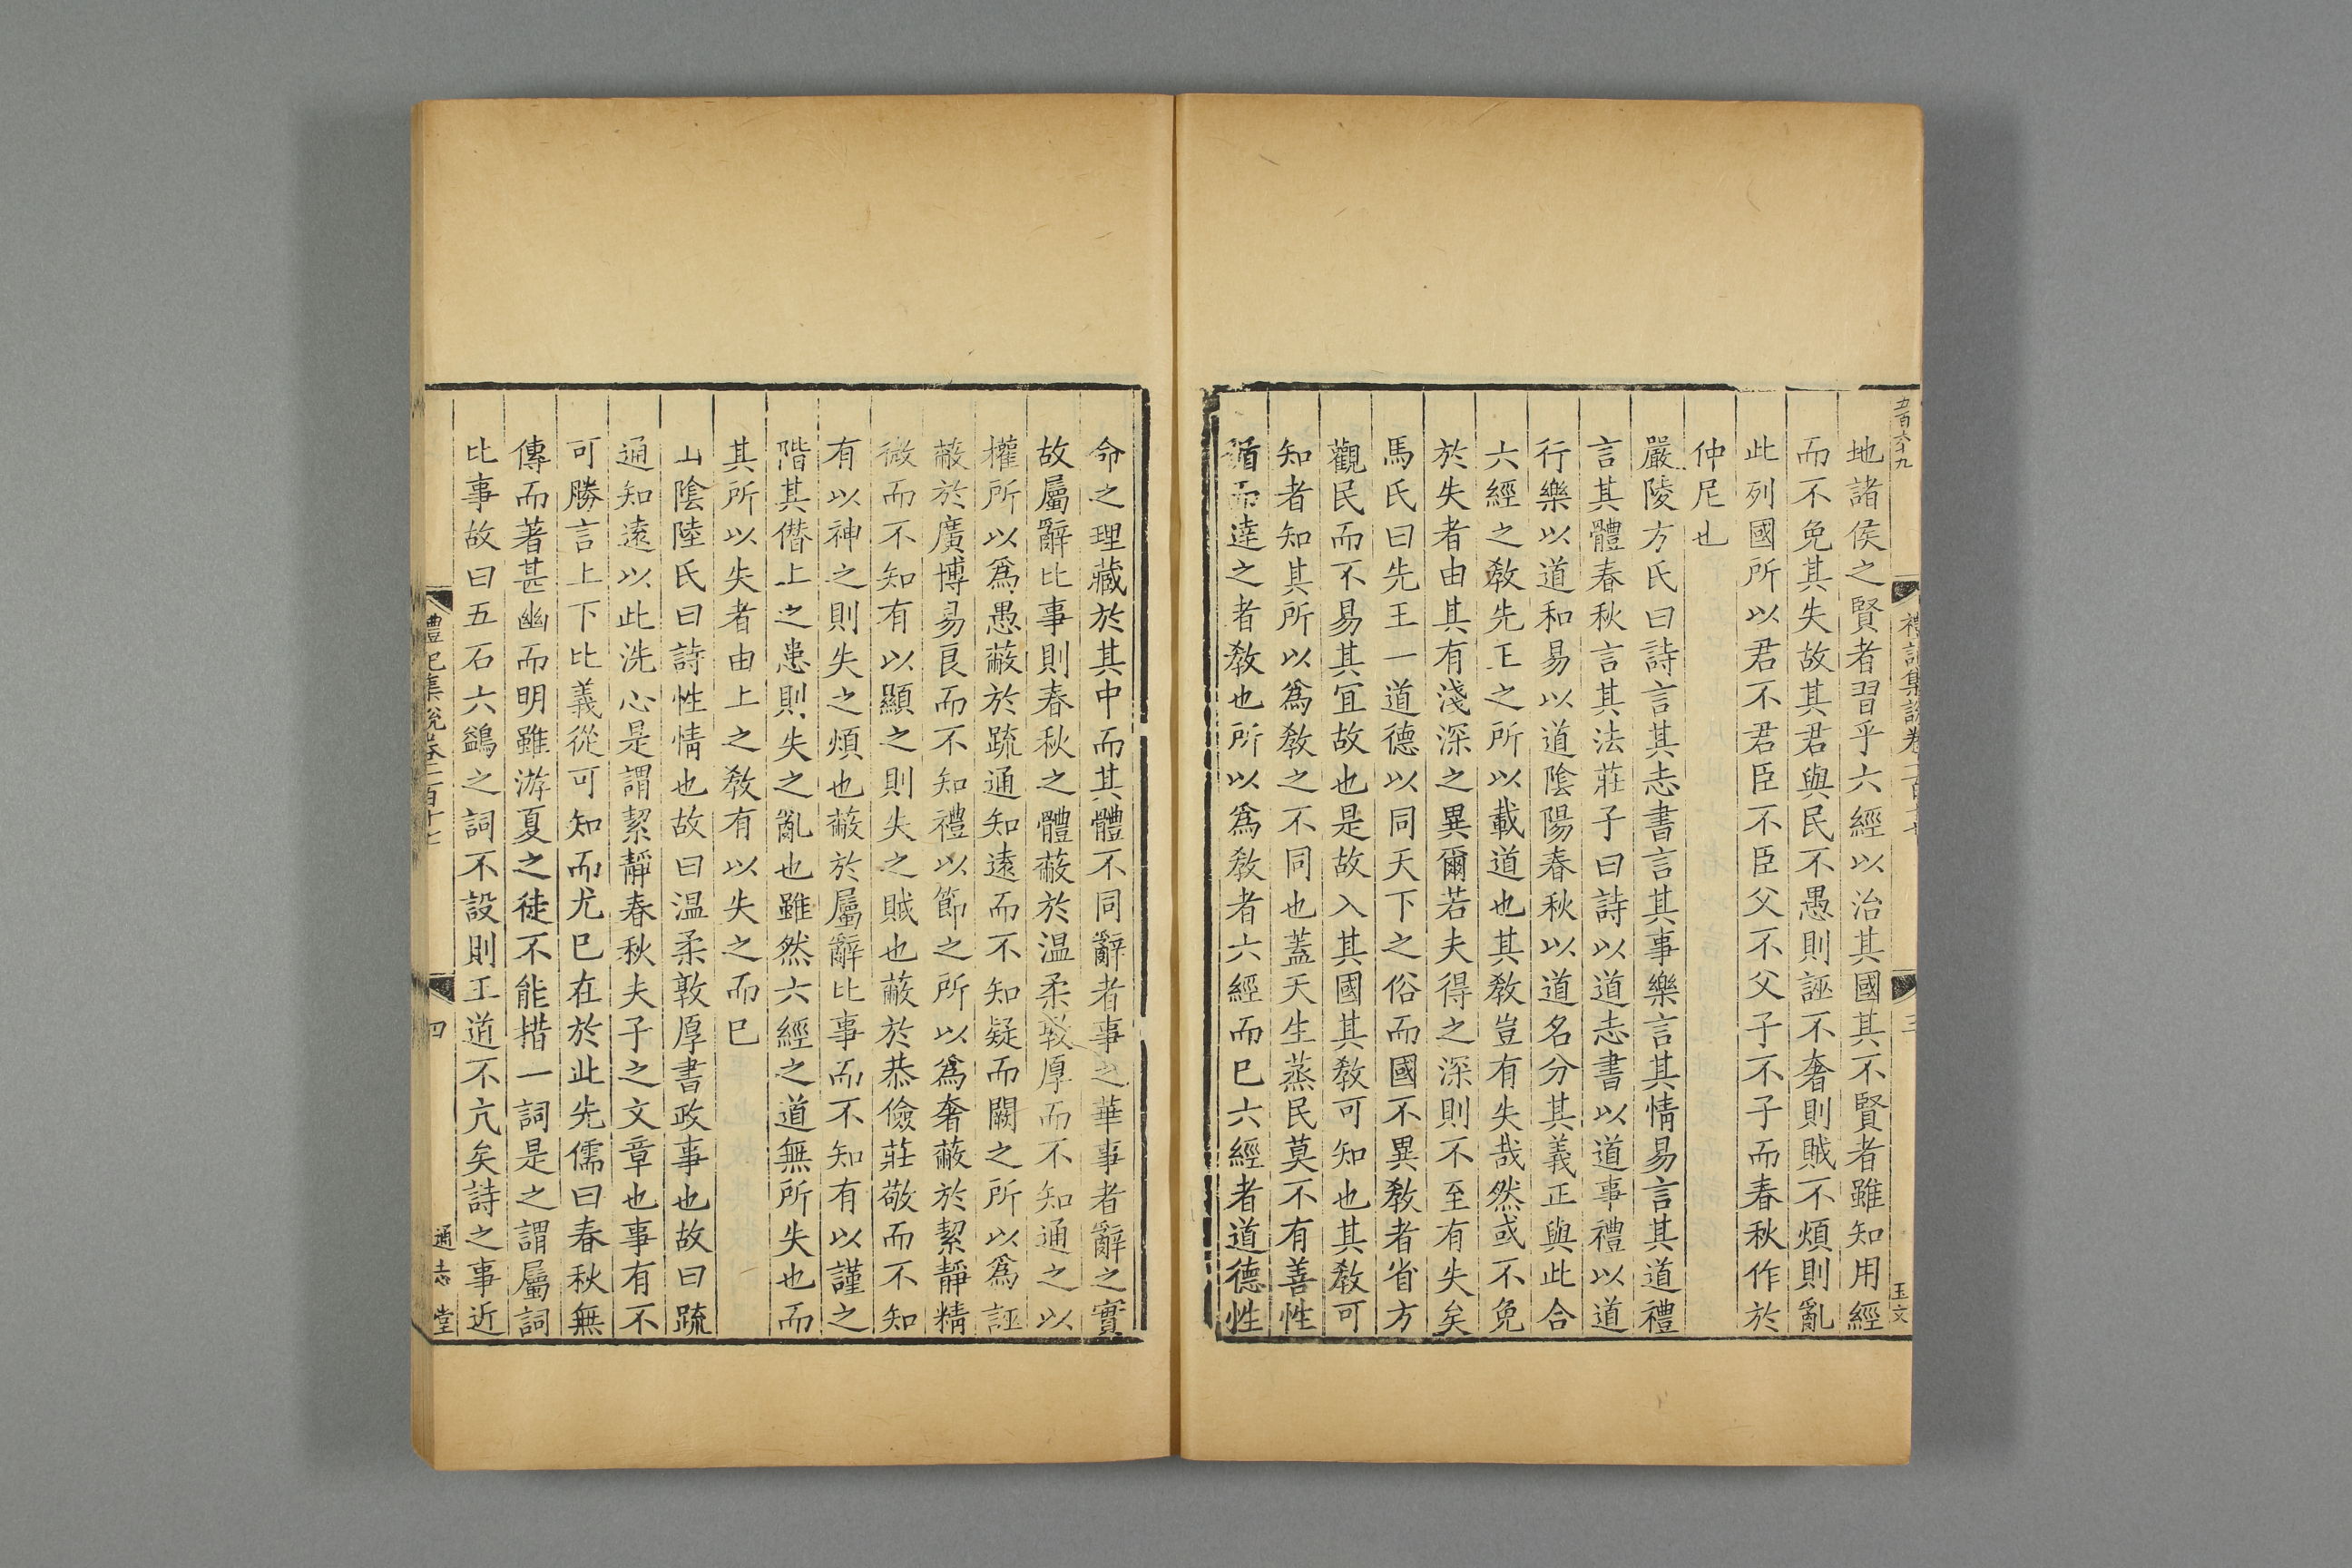 五百六十九
禮記集說卷一百十七
三
玉文
地諸侯之賢者習乎六經以治其國其不賢者雖知用經
而不免其失故其君與民不愚則誣不奢則賊不煩則亂
此列國所以君不君臣不臣父不父子不子而春秋作於
仲尼也
嚴陵方氏曰詩言其志書言其事樂言其情易言其道禮
言其體春秋言其法莊子曰詩以道志書以道事禮以道
行樂以道和易以道陰陽春秋以道名分其義正與此合
六經之敎先王之所以載道也其敎豈有失哉然或不免
於失者由其有淺深之異爾若夫得之深則不至有失矣
馬氏曰先王一道德以同天下之俗而國不異敎者省方
觀民而不易其宜故也是故入其國其敎可知也其敎可
知者知其所以爲敎之不同也蓋天生蒸民莫不有善性
循而達之者敎也所以爲敎者六經而已六經者道德性
命之理藏於其中而其體不同辭者事之華事者辭之實
故屬辭比事則春秋之體蔽於温柔敦厚而不知通之以
權所以爲愚蔽於疏通知遠而不知疑而闕之所以爲誣
蔽於廣博易良而不知禮以節之所以爲奢蔽於絜靜精
微而不知有以顯之則失之賊也蔽於恭儉莊敬而不知
有以神之則失之煩也蔽於屬辭比事而不知有以謹之
階其僭上之患則失之亂也雖然六經之道無所失也而
其所以失者由上之敎有以失之而已
山陰陸氏曰詩性情也故曰温柔敦厚書政事也故曰疏
通知遠以此洗心是謂絜靜春秋夫子之文章也事有不
可勝言上下比義從可知而尤已在於此先儒曰春秋無
傳而著甚幽而明雖游夏之徒不能措一詞是之謂屬詞
比事故曰五石六鷁之詞不設則王道不亢矣詩之事近
禮記集說卷一百十七
四
通志堂